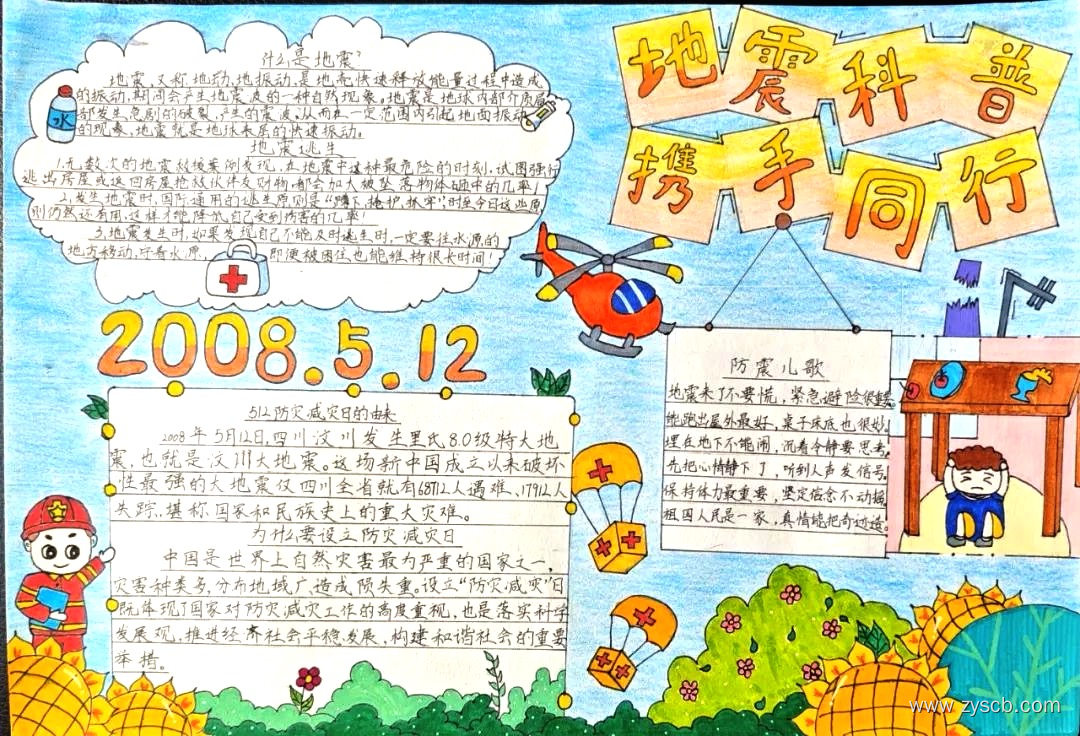 地震科普
携手同行
什么是地震?
地震,又称地动,地振动,是地壳快速释放能量过程中造成
的振动,期间会产生地震波的一种自然现象,地震是地球内部介质局
部发生急剧的破裂,产生的震波,从而在一定范围内引起地面振动
的现象,地震就是地球表层的快速振动。
水
地震逃生
1.无数次的地震救援案例发现,在地震中这种最危险的时刻,试图强行
逃出房屋或返回房屋抢救伙伴及财物都会加大被坠落物体砸中的几率!
2.发生地震时,国际通用的逃生原则是“蹲下,掩护,抓牢”,时至今日这些原
则仍然还有用,这样才能降低自己受到伤害的几率!
3.地震发生时,如果发现自己不能及时逃生时,一定要往水源的
地方移动,守着水源,即便被困住也能维持很长时间!
2008.5.12
512防灾减灾日的由来
2008年5月12日,四川汶川发生里氏8.0级特大地
震,也就是汶川大地震。这场新中国成立以来破坏
性最强的大地震仅四川全省就有68712人遇难、17912人
失踪,堪称国家和民族史上的重大灾难。
为什么要设立防灾减灾日
中国是世界上自然灾害最为严重的国家之一,
灾害种类多,分布地域广造成损失重。设立“防灾减灾”日
既体现了国家对防灾减灾工作的高度重视,也是落实科学
发展观,推进经济社会平稳发展,构建和谐社会的重要
举措。
防震儿歌
地震来了不要慌,紧急避险很重要
能跑出屋外最好,桌子床底也很妙。
埋在地下不能闹,沉着冷静要思考,
先把心情静下了,听到人声发信号。
保持体力最重要,坚定信念不动摇
祖国人民是一家,真情能把奇迹造。
www.zyscb.com